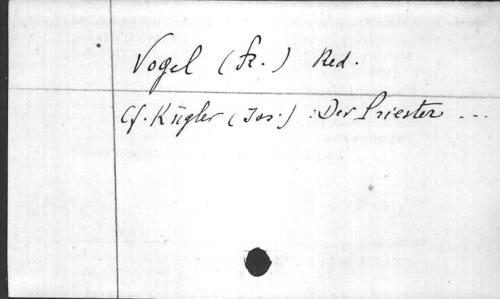 Vogel (Fr.) Red.
Cf. Kügler (Jos.) : Der Priester ...